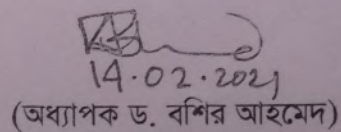 14.02.2021
(অধ্যাপক ড. বশির আহমেদ)